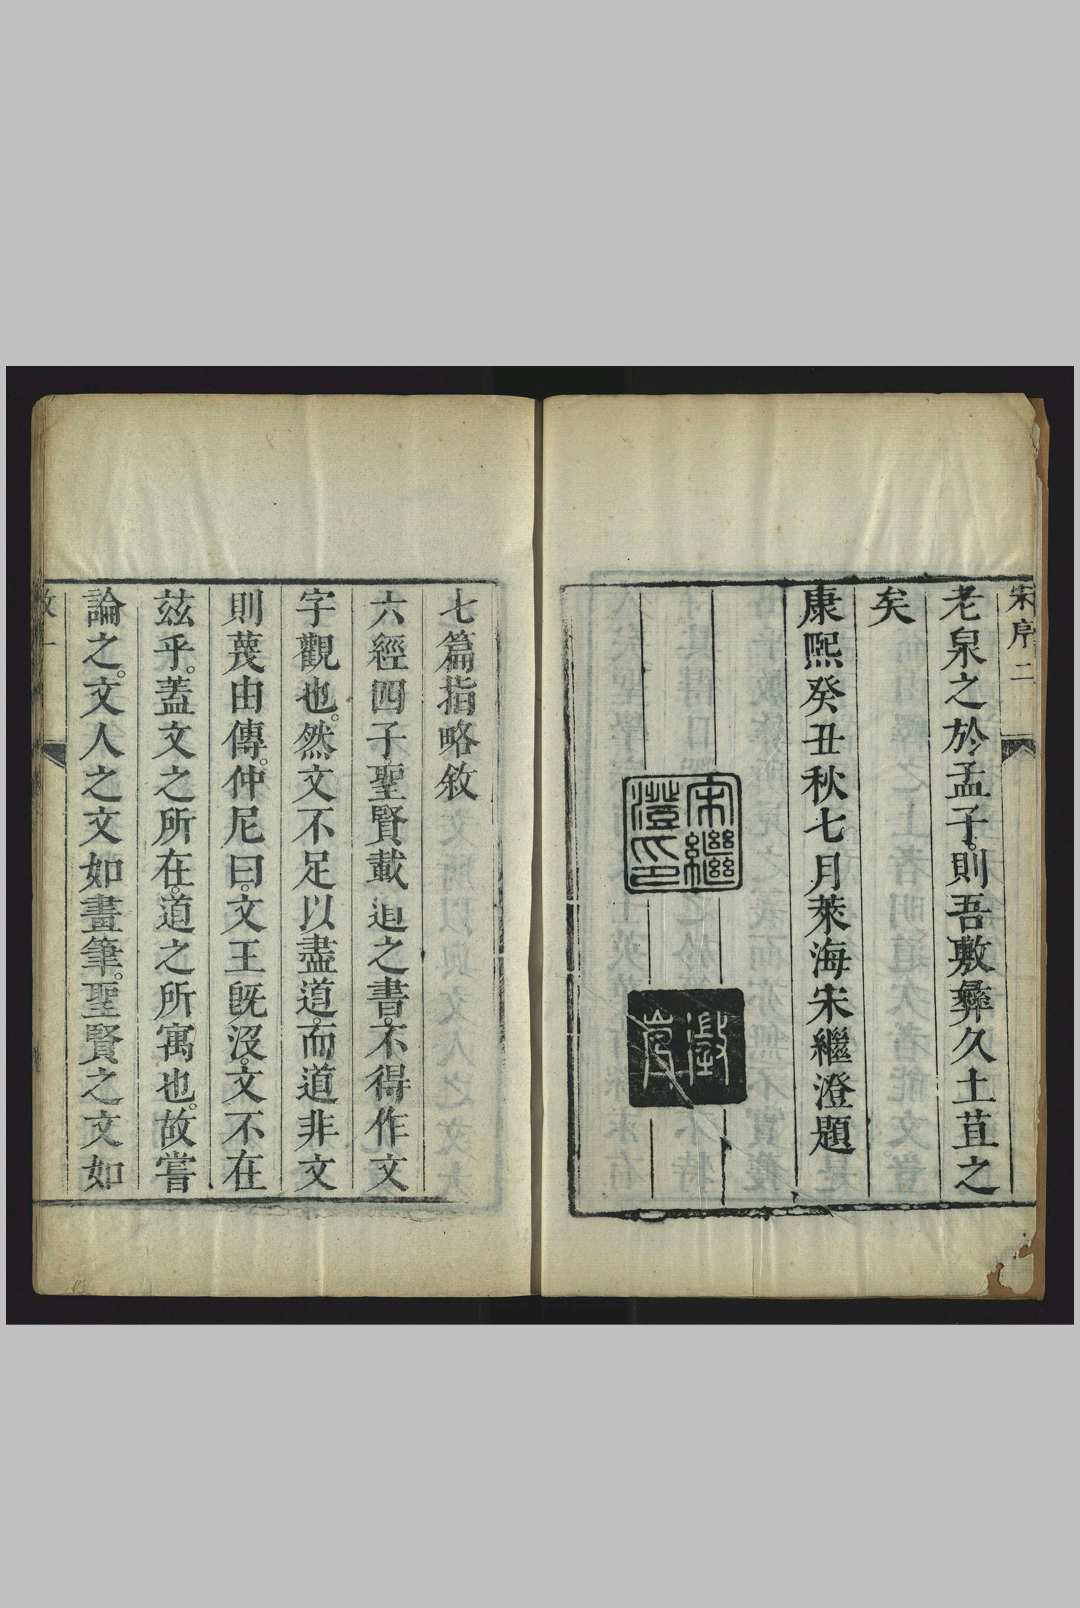 宋序 二
老泉之於孟子則吾敷彝久土苴之
矣
康熙癸丑秋七月萊海宋繼澄題
宋繼
澄氏印
澂
嵐
七篇指略敘
六經四子聖賢載道之書不得作文
字觀也。然文不足以盡道而道非文
則蔑由傳。仲尼曰。文王既沒。文不在
茲乎。蓋文之所在。道之所寓也。故嘗
論之。文人之文如畫筆。聖賢之文如
敘 一